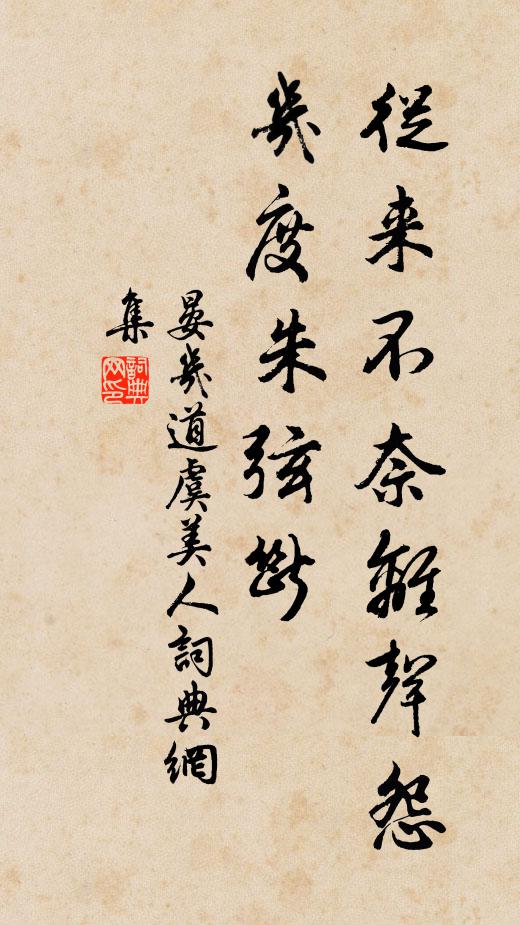 從来不奈離聲怨
幾度朱弦斷
晏幾道虞美人詞典網
集
詞典
网印